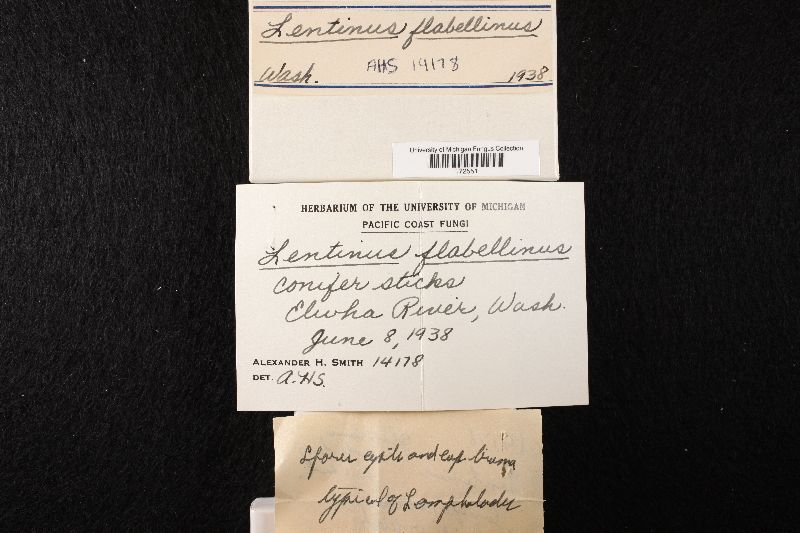 Lentinus flabellinus
Wash. AHS 14178 1938
University of Michigan Fungus Collection
72551
HERBARIUM OF THE UNIVERSITY OF MICHIGAN
PACIFIC COAST FUNGI
Lentinus flabellinus
conifer sticks
Elwha River, Wash.
June 8, 1938
ALEXANDER H. SMITH 14178
DET. A.H.S.
Spores and cap trama
typical of